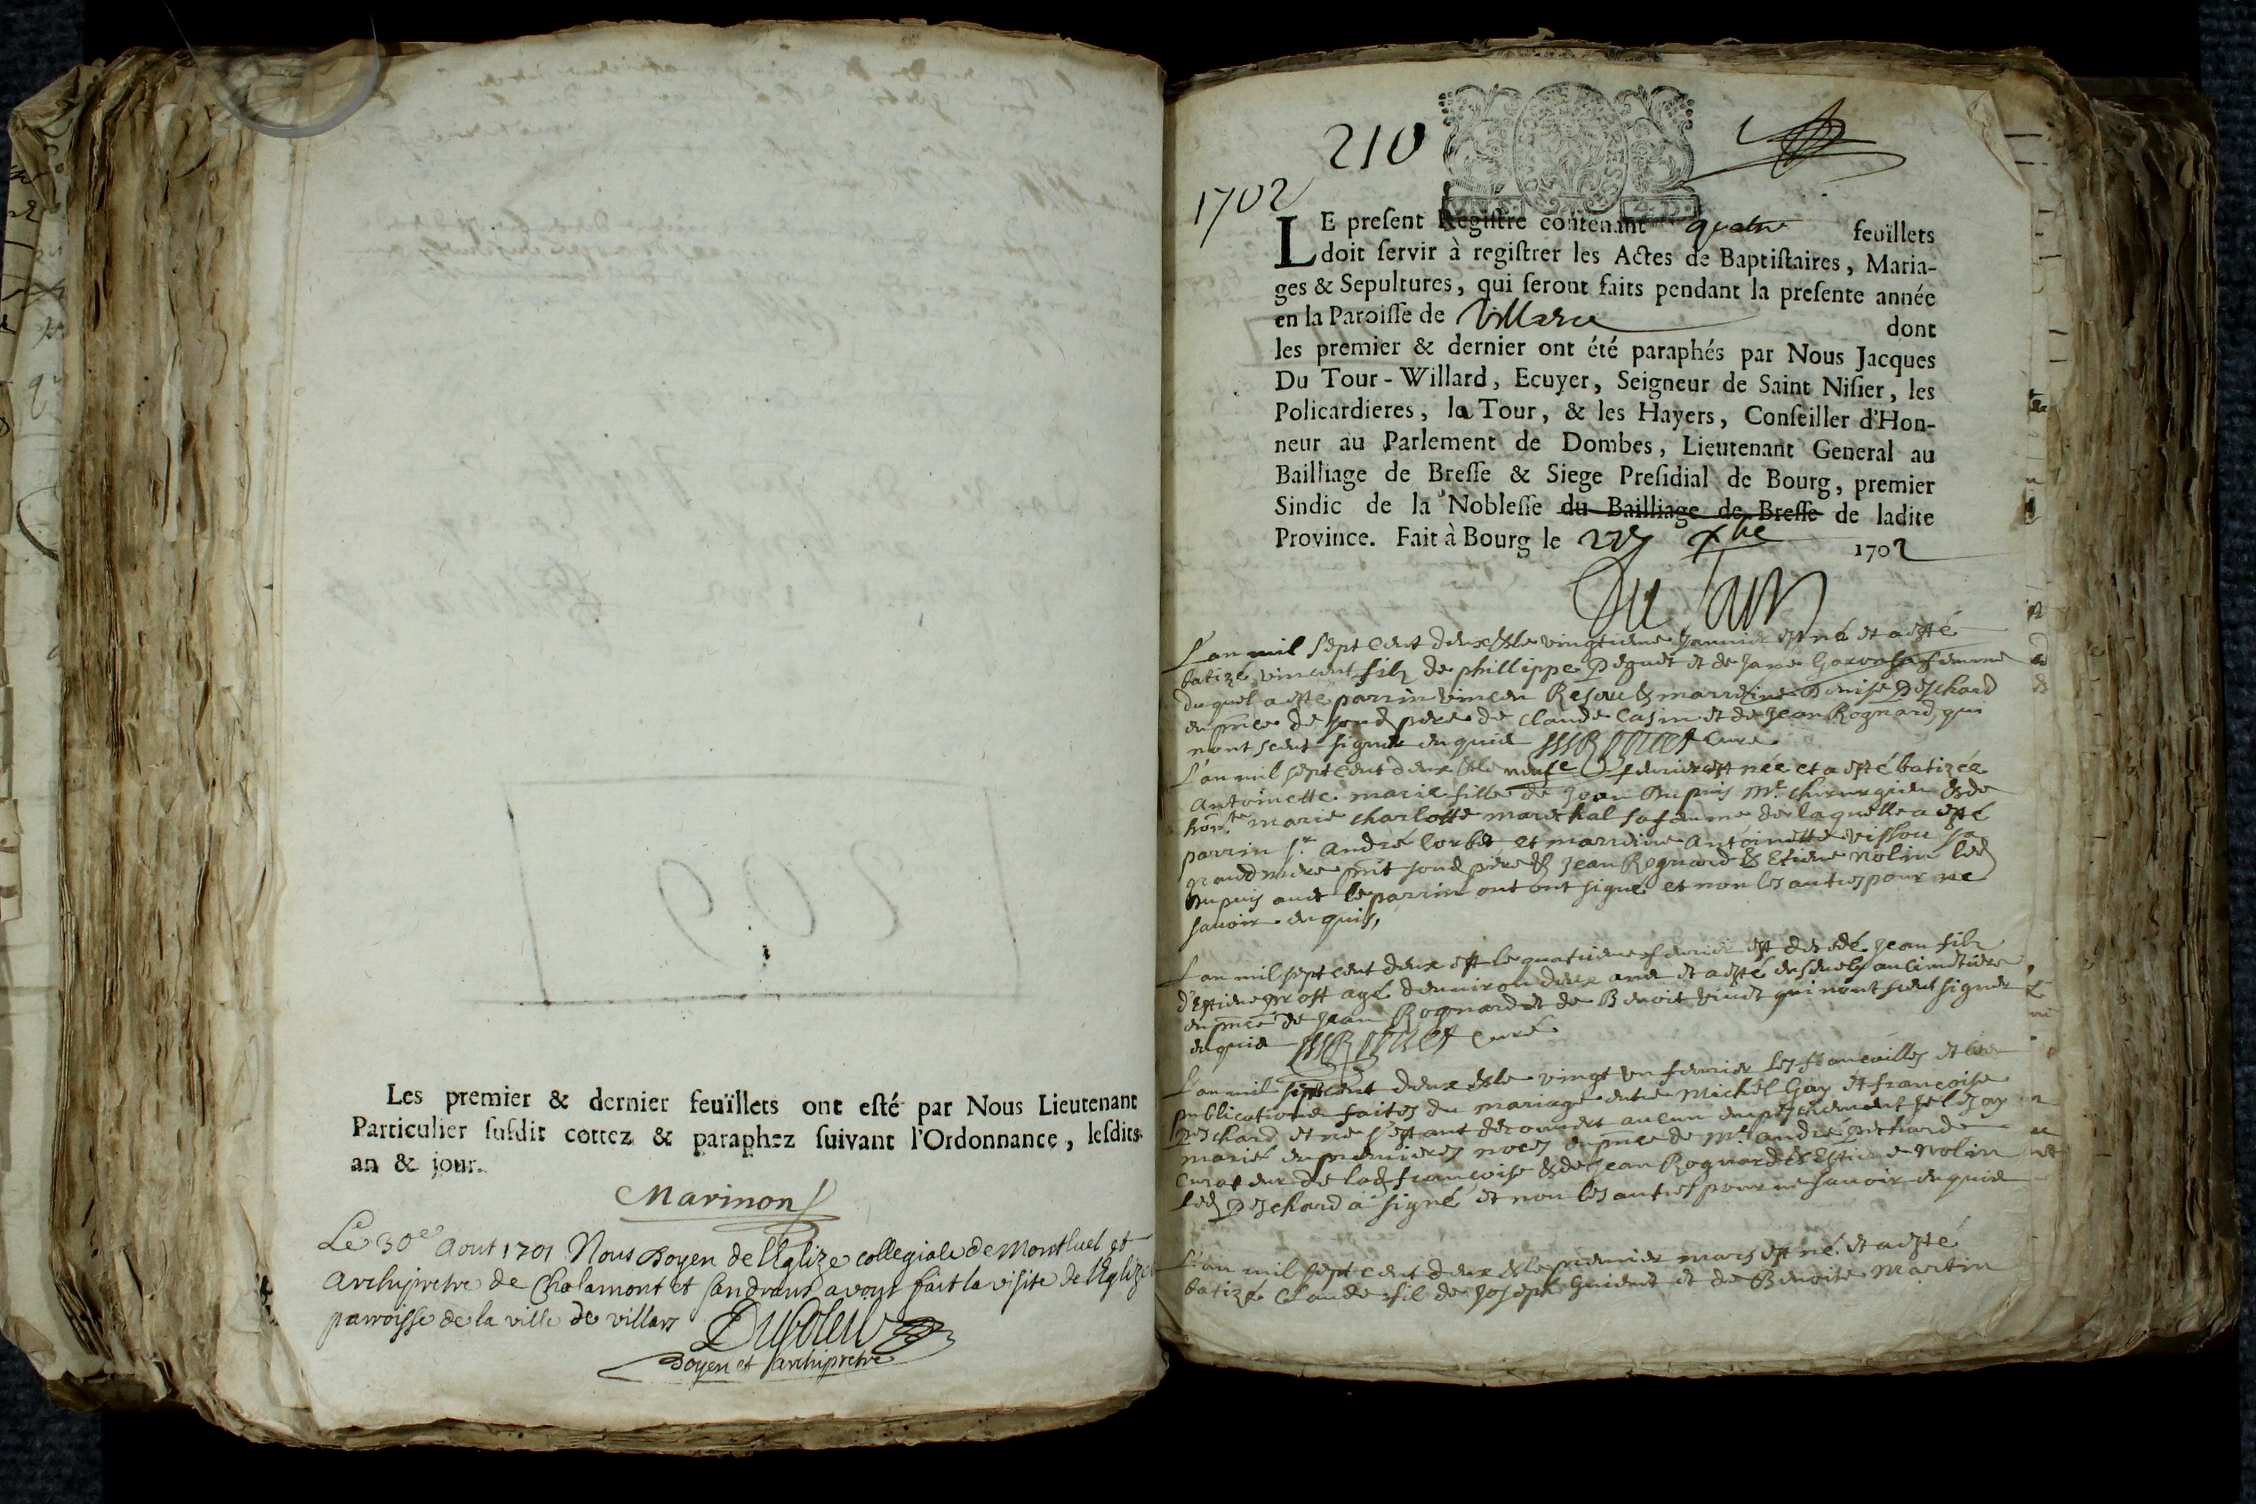 Les premier & dernier feuïllets ont esté par Nous Lieutenant
Particulier susdit cottez & paraphez suivant l'Ordonnance, lesdits
an & jour.
Marinon
Le 30e Aout 1701 Nous Doyen de l'Eglize collegiale de Montluel et
Archipretre de Chalamont et Sandrans avons fait la visite de l'Eglize
parroisse de la ville de villars
Doyen et archipretre
210
1702
LE present Registre contenant quatre feuïllets
doit servir à registrer les Actes de Baptistaires, Maria-
ges & Sepultures, qui seront faits pendant la presente année
en la Paroisse de Villars dont
les premier & dernier ont été paraphés par Nous Jacques
Du Tour-Willard, Ecuyer, Seigneur de Saint Nisier, les
Policardieres, la Tour, & les Hayers, Conseiller d'Hon-
neur au Parlement de Dombes, Lieutenant General au
Bailliage de Bresse & Siege Presidial de Bourg, premier
Sindic de la Noblesse du Bailliage de Bresse de ladite
Province. Fait à Bourg le xbe 1702
Du Tour
L'an mil sept cent deux & le vingtieme Janvier est né et a esté
batizé vincent filz de phillippe Peguet et de femme
duquel a esté parrin vincen & marreine Denise Deschard
en pnce de sond pere de Claude Casin et de Jean Rognard qui
nont sceut signer enquis Curé
L'an mil sept cent deux & le neufe fevrier est née et a esté batizée
Antoinette marie fille de Jean Dupuis Me chirurgien & de
marie charlotte mareschal sa femme de laquelle a esté
parrin sr André Corbet et marreine Antoinette vissou sa
grand mere pnt sond pere & Jean Rognard & Etiene Nolin led
Dupuis avec le parrin ont ont signé et non les autres pour ne
savoir enquis,
L'an mil sept cent deux est le quatrieme fevrier est decedé Jean filz
d'Estiene prost agé denviron deux ans et a esté ensevely au cimetiere
en pnce de Jean Rognard et de Benoit qui nont sceut signer
enquis Curé
L'an mil sept cent deux & le vingt un fevrier les fiancailles et les
publications faites du mariage entre Michel Gay et francoise
Deschard et ne s'estant decouvert aucun empeschement je les ay
mariés en premieres noces en pnce de Me andre Dechard
Curateur de lad francoise & de Jean Rognard & Estiene Nolin
led Deschard a signé et non les autres pour ne savoir enquis
L'an mil sept cent deux & le premier mars est né et a esté
batizé Claude fil de Joseph et de Benoite Martin